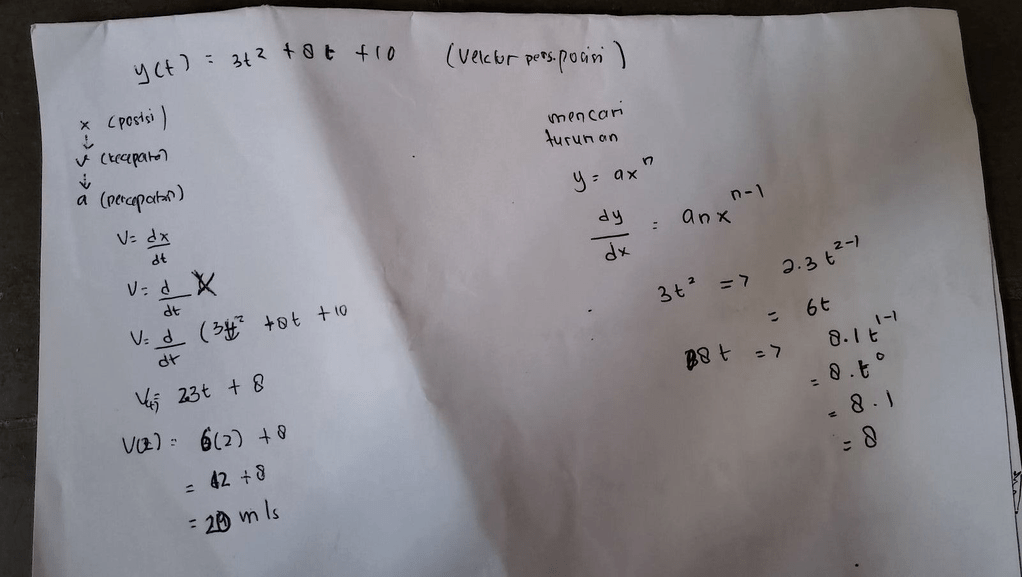 y(t) = 3t² + 8t + 10 (Vektor pers. posisi)
x (posisi)
↓
v (kecepatan)
↓
a (percepatan)
V = dx/dt
V = d/dt
V = d/dt (3t² + 8t + 10
V(t) = 2.3t + 8
V(2) = 6(2) + 8
= 12 + 8
= 20 m/s
mencari
turunan
y = axⁿ
dy/dx = anxⁿ⁻¹
3t² => 2.3t²⁻¹
= 6t
8t => 8.1t¹⁻¹
= 8.t⁰
= 8.1
= 8